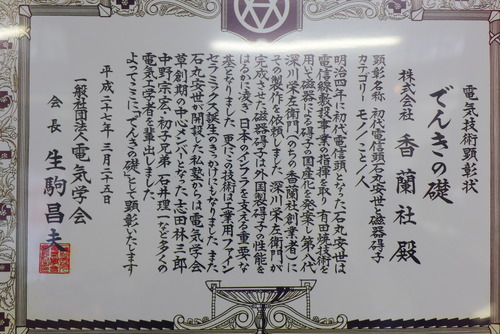 電気技術顕彰状
でんきの礎
株式会社 香蘭社 殿
顕彰名称 初代電信頭石丸安世と磁器碍子
カテゴリー モノ/こと/人
明治四年に初代電信頭となった石丸安世は
電信線敷設事業の指揮を執り有田焼技術を
用いた磁器による碍子の国産化を発案し第八代
深川栄左衛門(のちの香蘭社創業者)に
その製作を依頼しました。深川栄左衛門が
完成させた磁器碍子は外国製碍子の性能を
はるかに凌ぎ、日本のインフラを支える重要な
基となりました。更にこの技術は工業用ファイン
セラミックス誕生のきっかけにもなりました。また、
石丸安世が開設した私塾からは電気学会
草創期の中心メンバーとなった志田林三郎
中野宗宏・初子兄弟、石井理一など多くの
電気工学者を輩出しました。
よってここに「でんきの礎」として顕彰いたします
平成二十七年三月二十五日
一般社団法人 電気学会
会長 生駒昌夫